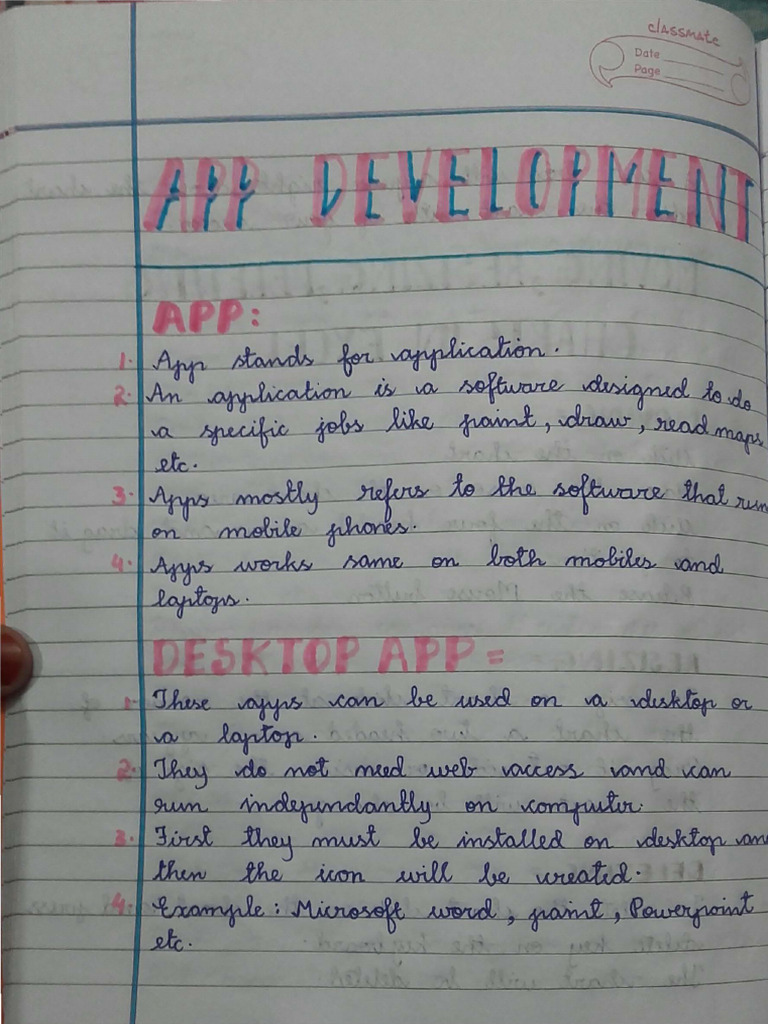 classmate
Date
Page
APP DEVELOPMENT
APP:
1. App stands for application.
2. An application is a software designed to do
a specific jobs like paint, draw, read maps
etc.
3. Apps mostly refers to the software that run
on mobile phones.
4. Apps works same on both mobiles and
laptops.
DESKTOP APP =
1. These apps can be used on a desktop or
a laptop.
2. They do not need web access and can
run independantly on computer.
3. First they must be installed on desktop and
then the icon will be created.
4. Example: Microsoft word, paint, Powerpoint
etc.